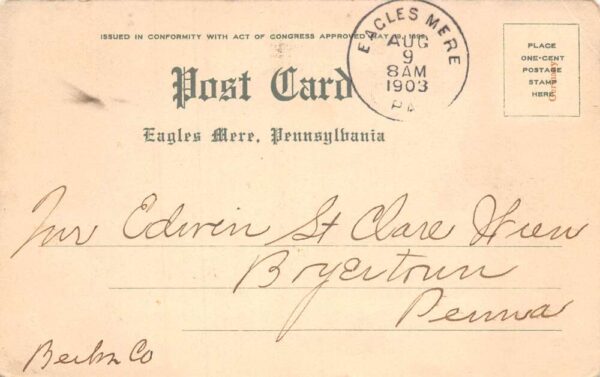 ISSUED IN CONFORMITY WITH ACT OF CONGRESS APPROVED MAY 19, 1898
EAGLES MERE
AUG
9
8AM
1903
PA
PLACE
ONE-CENT
POSTAGE
STAMP
HERE
Germany
Post Card
Eagles Mere, Pennsylvania
Edwin St Clare
Boyertown
Penna
Berks Co